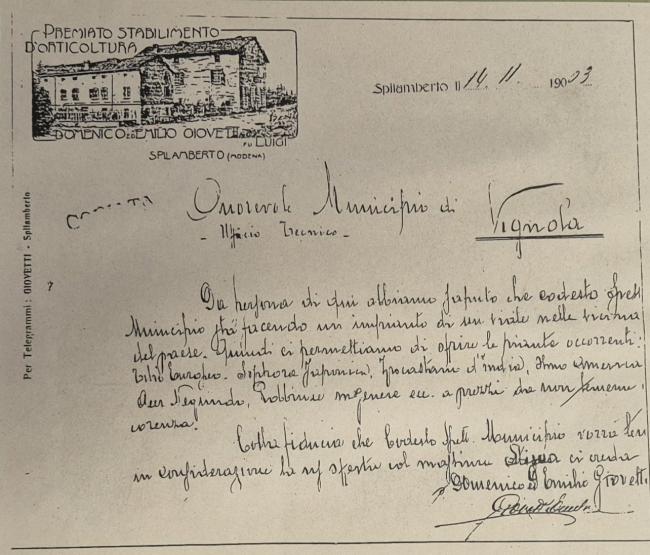 PREMIATO STABILIMENTO
D'ORTICOLTURA
DOMENICO ED EMILIO GIOVETTI
FU LUIGI
SPILAMBERTO (MODENA)
Spilamberto li 14. 11. 1903
Per Telegrammi: GIOVETTI - Spilamberto
Onorevole Municipio di Vignola
- Ufficio Tecnico -
Da persona di qui abbiamo saputo che codesto spett.
Municipio sta facendo un impianto di un viale nelle vicina
del paese. Quindi ci permettiamo di offrire le piante occorrenti:
Tilio Europeo. Sophora Japonica, Ippocastani d'India, Olmo America
Acer Negundo, Robbinie in genere ec. a prezzi da non temere
corenza.
Colla fiducia che Codesto Spett. Municipio vorrà ten
in considerazione la ns offerta col massima stima ci creda
Domenico ed Emilio Giovetti